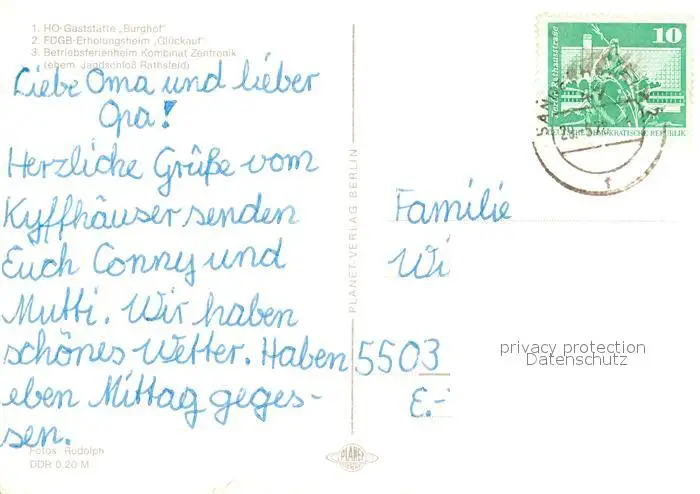 1. HO-Gaststätte „Burghof"
2. FDGB-Erholungsheim „Glückauf"
3. Betriebsferienheim Kombinat Zentronik
(ehem. Jagdschloß Rathsfeld)
Liebe Oma und lieber
Opa!
Herzliche Grüße vom
Kyffhäuser senden
Euch Conny und
Mutti. Wir haben
schönes Wetter. Haben
eben Mittag geges-
sen.
Fotos: Rudolph
DDR 0,20 M
PLANET-VERLAG BERLIN
PLANET
10
DEUTSCHE DEMOKRATISCHE REPUBLIK
Familie
Wi
5503
E.-
privacy protection
Datenschutz